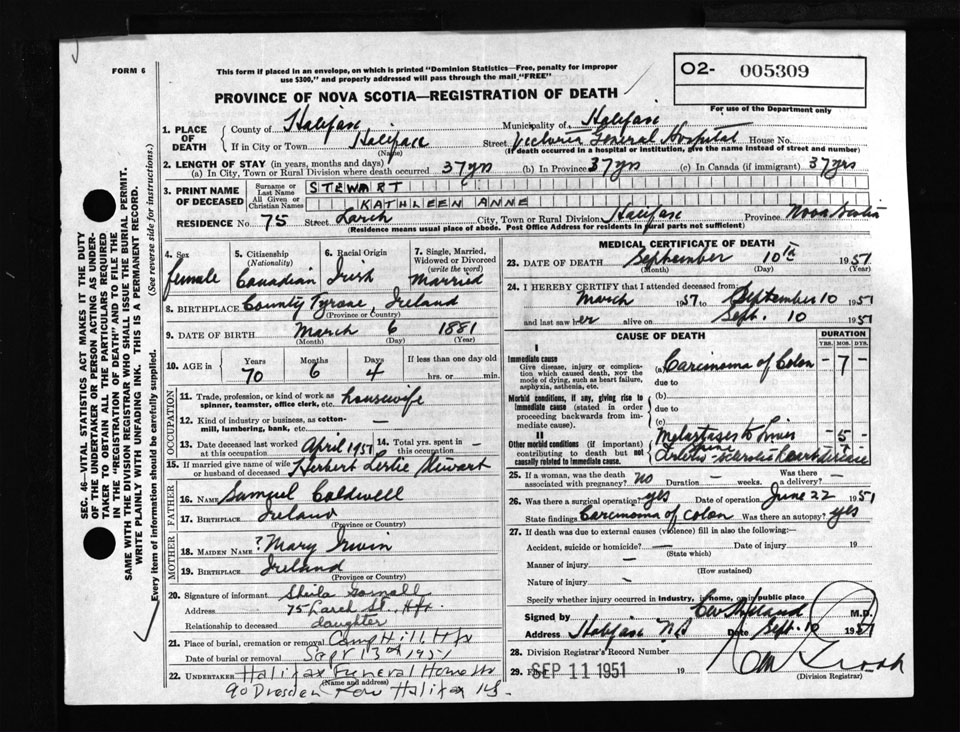 FORM 6
This form if placed in an envelope, on which is printed "Dominion Statistics—Free, penalty for improper
use $300," and properly addressed will pass through the mail "FREE"
O2- 005309
For use of the Department only
PROVINCE OF NOVA SCOTIA—REGISTRATION OF DEATH
1. PLACE OF DEATH
County of Halifax Municipality of Halifax
If in City or Town Halifax Street Victoria General Hospital House No.
(Name) (If death occurred in a hospital or institution, give the name instead of street and number)
2. LENGTH OF STAY (in years, months and days)
(a) In City, Town or Rural Division where death occurred 37 yrs (b) In Province 37 yrs (c) In Canada (if immigrant) 37 yrs
3. PRINT NAME OF DECEASED
Surname or Last Name STEWART
All Given or Christian Names KATHLEEN ANNE
RESIDENCE No. 75 Street Larch City, Town or Rural Division Halifax Province Nova Scotia
(Residence means usual place of abode. Post Office Address for Residents in rural parts not sufficient)
SEC. 46—VITAL STATISTICS ACT MAKES IT THE DUTY
OF THE UNDERTAKER OR PERSON ACTING AS UNDER-
TAKER TO OBTAIN ALL THE PARTICULARS REQUIRED
IN THE "REGISTRATION OF DEATH" AND TO FILE THE
SAME WITH THE DIVISION REGISTRAR WHO SHALL ISSUE THE BURIAL PERMIT.
WRITE PLAINLY WITH UNFADING INK. THIS IS A PERMANENT RECORD.
Every item of information should be carefully supplied. (See reverse side for instructions.)
4. Sex 5. Citizenship (Nationality) 6. Racial Origin 7. Single, Married, Widowed or Divorced (write the word)
female Canadian Irish Married
8. BIRTHPLACE County Tyrone, Ireland
(Province or Country)
9. DATE OF BIRTH March 6 1881
(Month) (Day) (Year)
10. AGE in Years Months Days If less than one day old
70 6 4 hrs. or min.
OCCUPATION
11. Trade, profession, or kind of work as spinner, teamster, office clerk, etc. housewife
12. Kind of industry or business, as cotton-mill, lumbering, bank, etc. —
13. Date deceased last worked at this occupation April 1951 14. Total yrs. spent in this occupation —
15. If married give name of wife or husband of deceased Herbert Leslie Stewart
FATHER
16. Name Samuel Caldwell
17. Birthplace Ireland
(Province or Country)
MOTHER
18. Maiden Name ? Mary Irwin
19. Birthplace Ireland
(Province or Country)
20. Signature of informant Sheila
Address 75 Larch St. Hfx
Relationship to deceased daughter
21. Place of burial, cremation or removal Camp Hill Hfx
Date of burial or removal Sept 13th 1951
22. UNDERTAKER Halifax Funeral Home
(Name and address)
90 Dresden Row Halifax N.S.
MEDICAL CERTIFICATE OF DEATH
23. DATE OF DEATH September 10th 1951
(Month) (Day) (Year)
24. I HEREBY CERTIFY that I attended deceased from:
March 1951 to September 10 1951
and last saw her alive on Sept. 10 1951
CAUSE OF DEATH DURATION
YRS. MOS. DYS.
I
Immediate cause
Give disease, injury or complication which caused death, not the mode of dying, such as heart failure, asphyxia, asthenia, etc.
(a) Carcinoma of Colon — 7 —
due to
Morbid conditions, if any, giving rise to immediate cause (stated in order proceeding backwards from immediate cause)
(b)
due to
(c)
II
Other morbid conditions (if important) contributing to death but not causally related to immediate cause.
Metastases to Liver - 5 -
25. If a woman, was the death associated with pregnancy? No Duration — weeks. Was there a delivery? —
26. Was there a surgical operation? yes Date of operation June 22 1951
State findings Carcinoma of colon Was there an autopsy? yes
27. If death was due to external causes (violence) fill in also the following:—
Accident, suicide or homicide? — Date of injury 19
(State which)
Manner of injury —
(How sustained)
Nature of injury
Specify whether injury occurred in industry, in home, or in public place
Signed by M.D.
Address Halifax N.S. Date Sept. 10 1951
28. Division Registrar's Record Number
29. Filed SEP 11 1951 19
(Division Registrar)